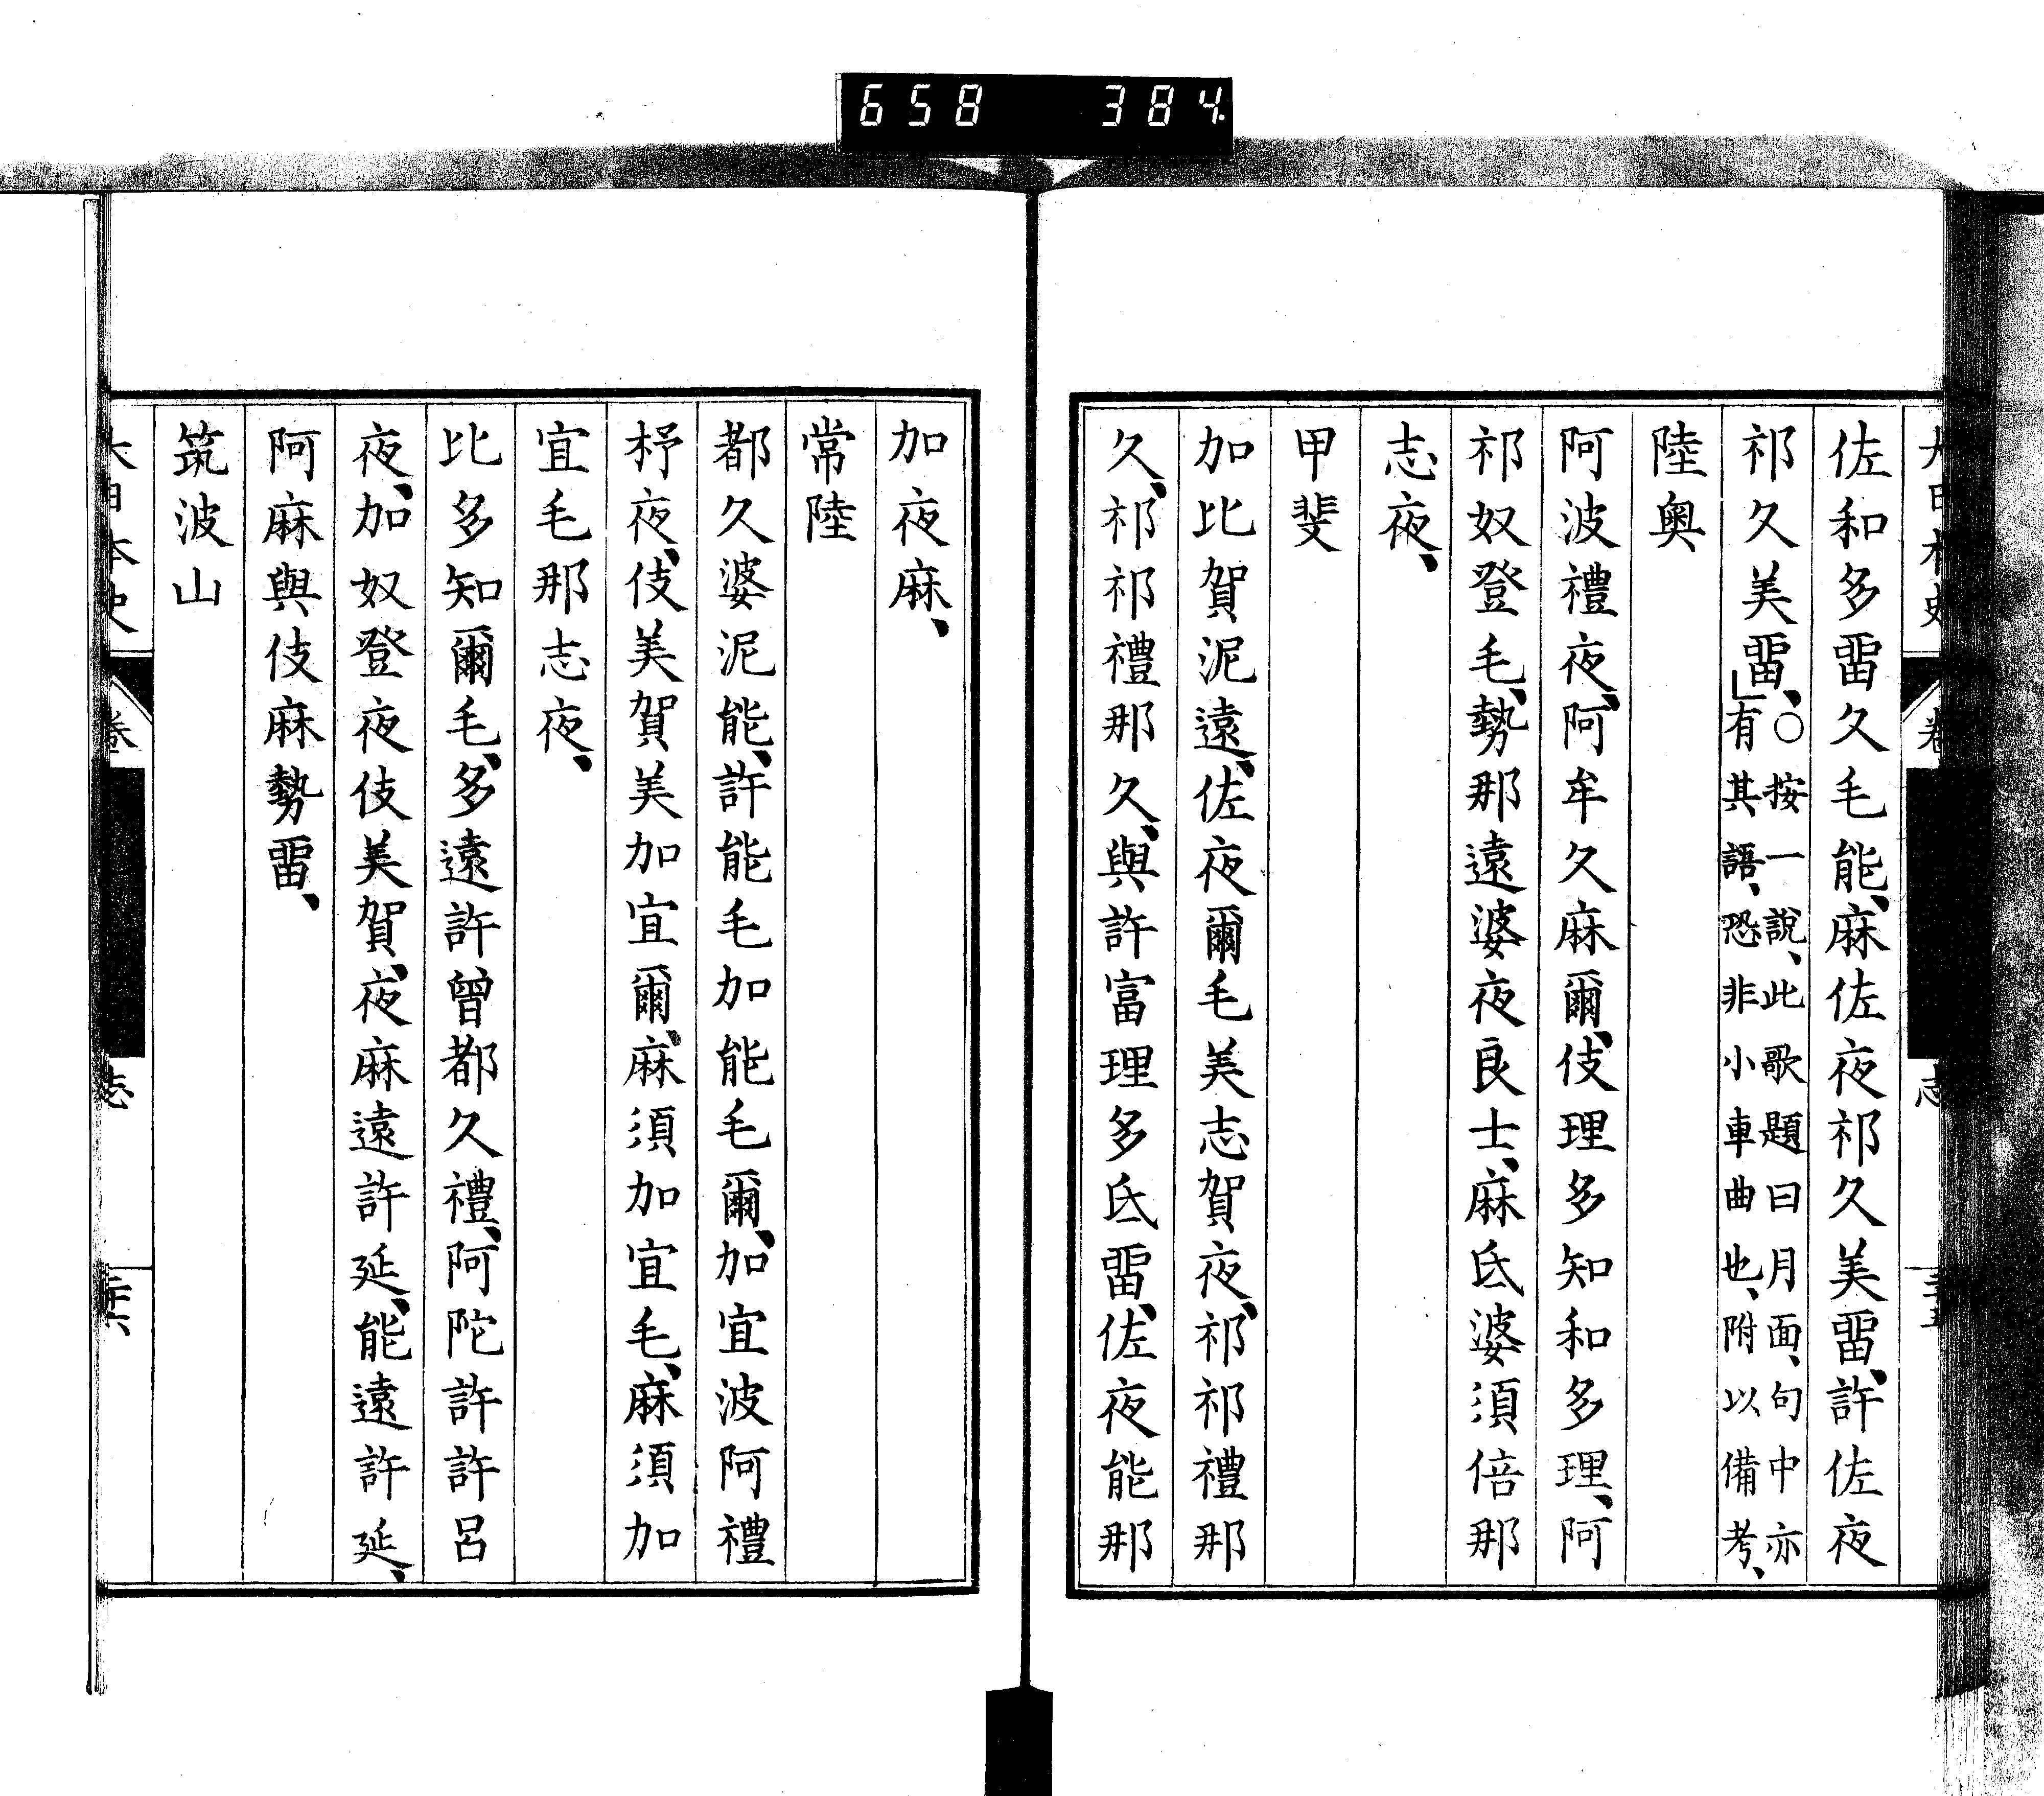 658 384
佐和多畱久毛能、麻佐夜祁久美畱、許佐夜
祁久美畱、」○按一說、此歌題曰月面、句中亦
有其語、恐非小車曲也、附以備考、
陸奥
阿波禮夜、阿牟久麻爾、伎理多知和多理、阿
祁奴登毛、勢那遠婆夜良士、麻氐婆須倍那
志夜、
甲斐
加比賀泥遠、佐夜爾毛美志賀夜、祁祁禮那
久、祁祁禮那久、與許富理多氐畱、佐夜能那
加夜麻、
常陸
都久婆泥能、許能毛加能毛爾、加宜波阿禮
杼夜、伎美賀美加宜爾、麻須加宜毛、麻須加
宜毛那志夜、
比多知爾毛、多遠許曾都久禮、阿陀許許呂
夜、加奴登夜伎美賀、夜麻遠許延、能遠許延、
阿麻與伎麻勢畱、
筑波山
大日本史 卷 志 三十六